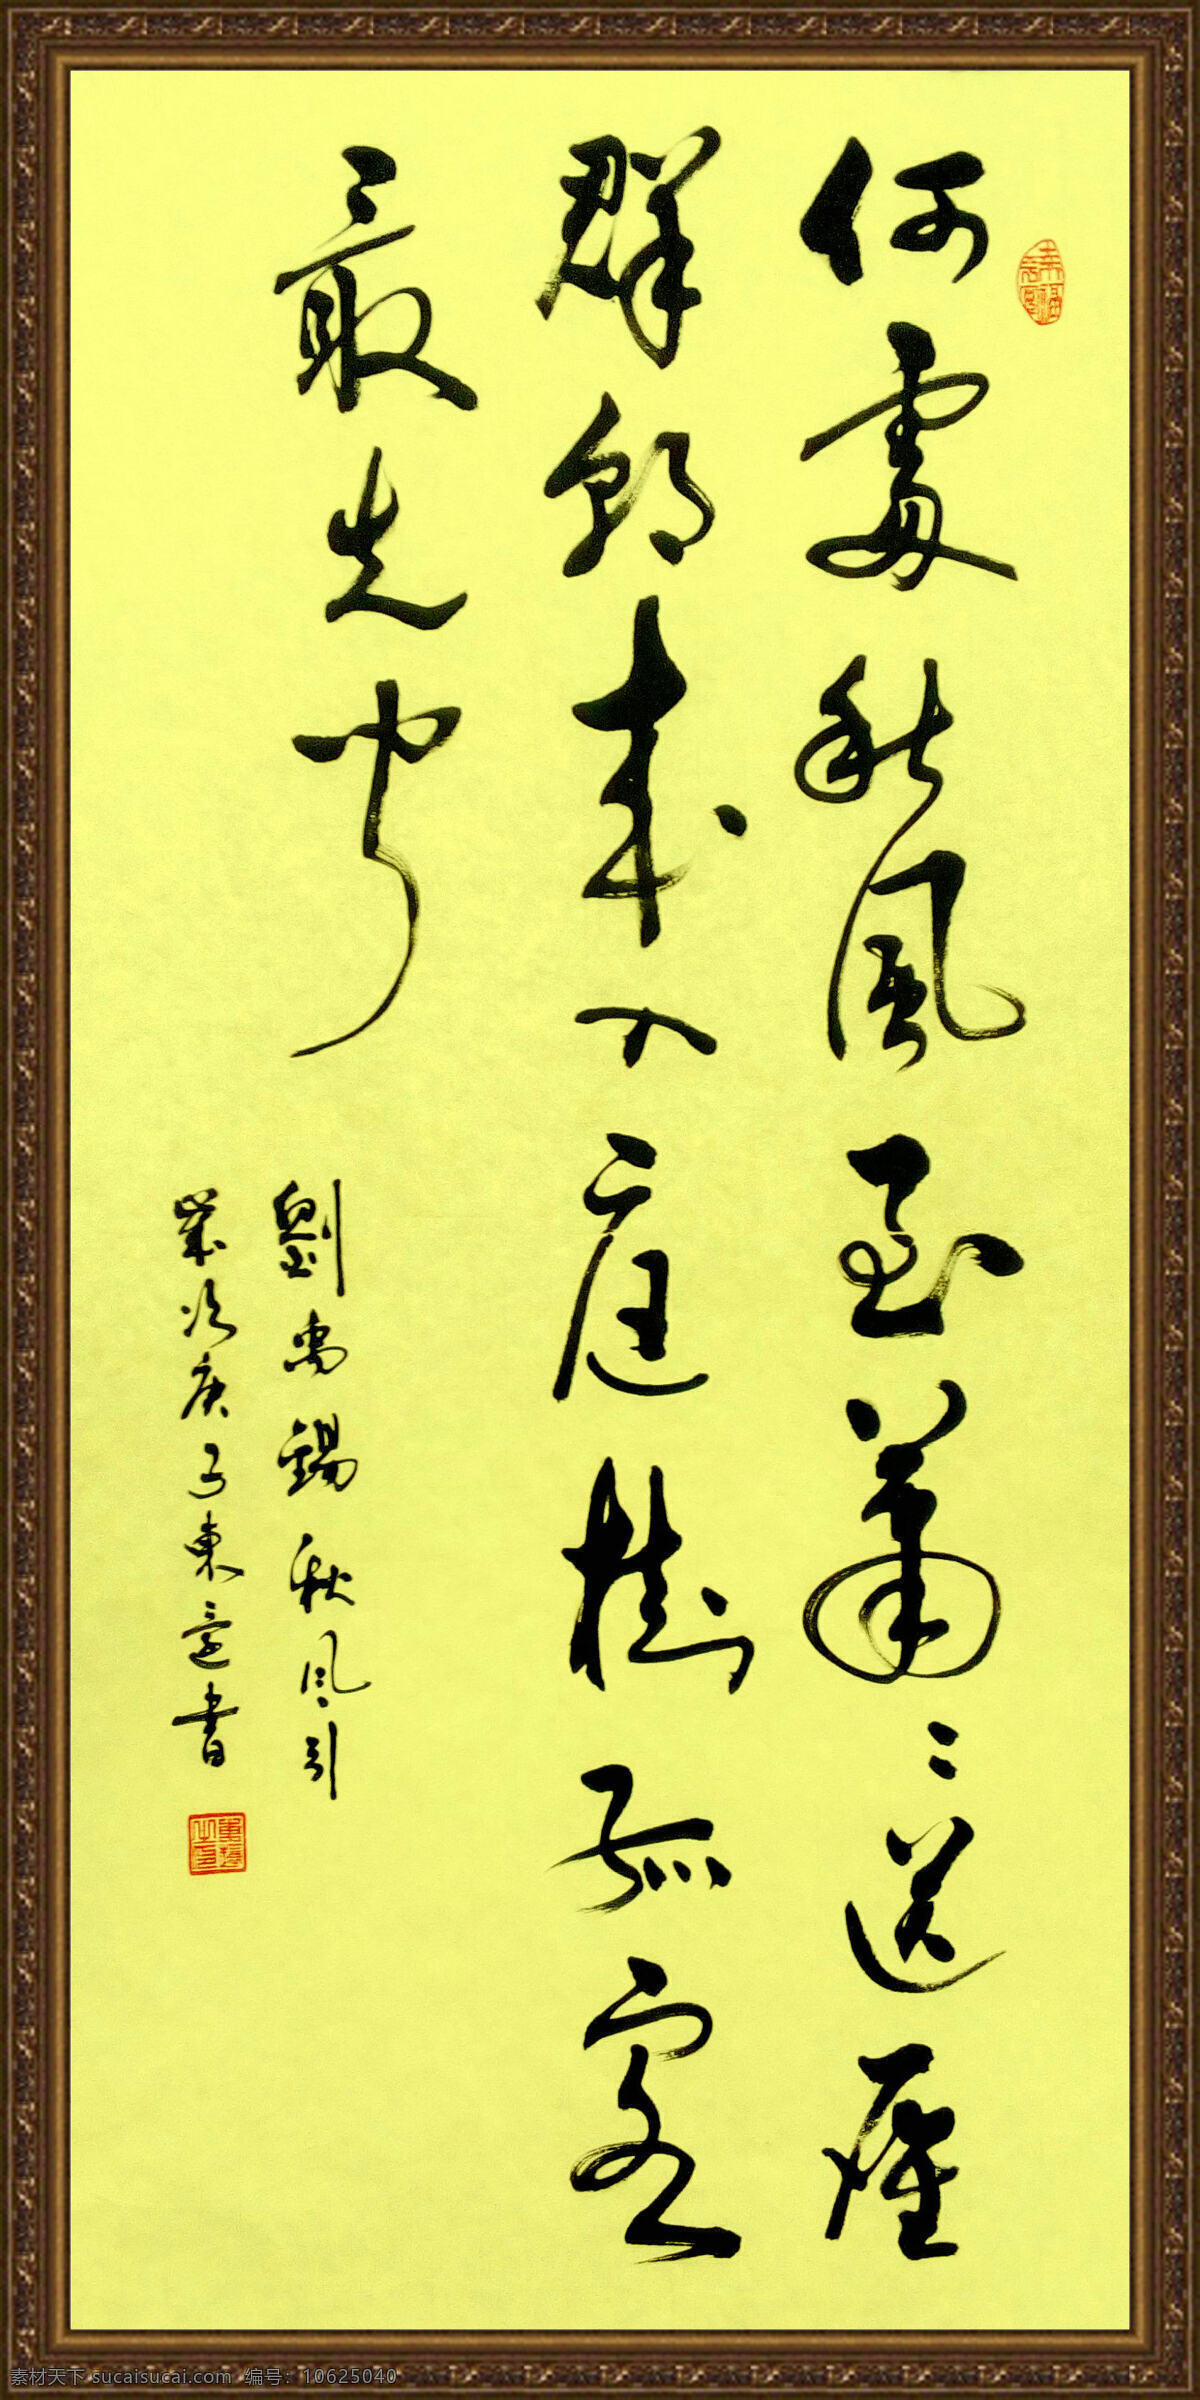 何處秋風至蕭〻送雁
群朝來入庭樹孤客
最先聞
劉禹錫秋風引
歲次庚子東意書
素材天下 sucaisucai.com 编号：10625040